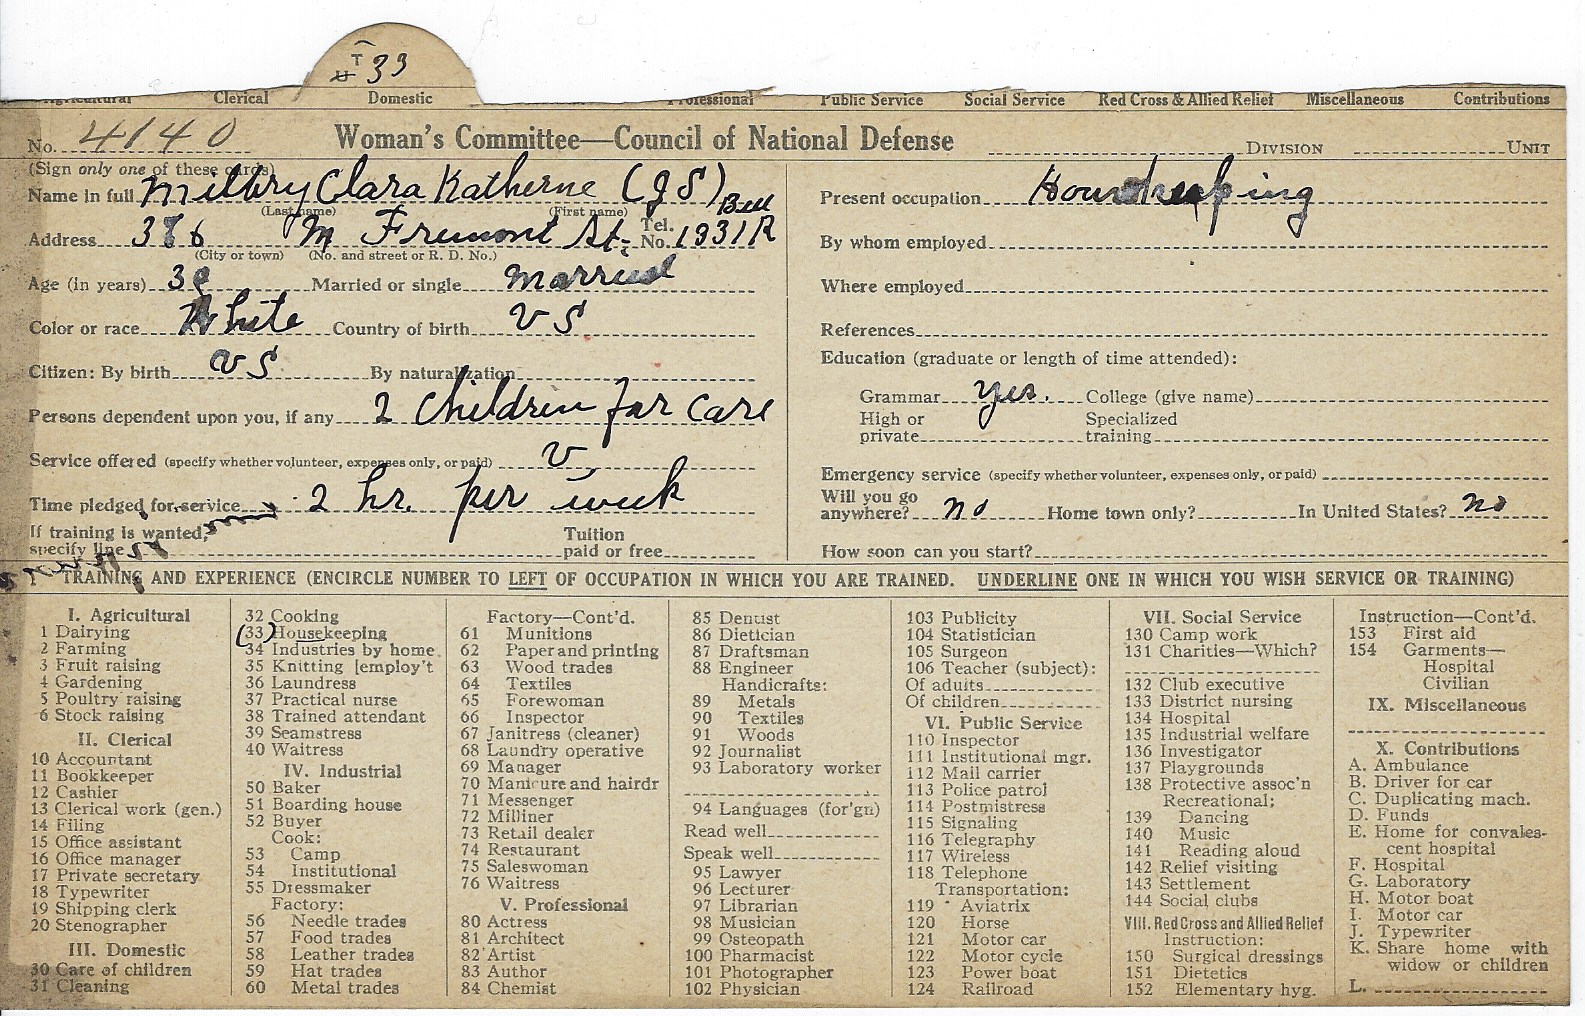 T
U 33
Agricultural Clerical Domestic Professional Public Service Social Service Red Cross & Allied Relief Miscellaneous Contributions
No. 4140 Woman's Committee—Council of National Defense DIVISION UNIT
(Sign only one of these cards)
Name in full Milbry Clara Katherne (J S)
(Last name) (First name)
Address 386 M Fremont St. Tel. No. Bell 1331R
(City or town) (No. and street or R. D. No.)
Age (in years) 30 Married or single Married
Color or race White Country of birth U S
Citizen: By birth U S By naturalization
Persons dependent upon you, if any 2 children for care
Service offered (specify whether volunteer, expenses only, or paid) V
Time pledged for service 2 hr. per week
If training is wanted, specify line Tuition paid or free
Present occupation Housekeeping
By whom employed
Where employed
References
Education (graduate or length of time attended):
Grammar yes. College (give name)
High or private Specialized training
Emergency service (specify whether volunteer, expenses only, or paid)
Will you go anywhere? no Home town only? In United States? no
How soon can you start?
TRAINING AND EXPERIENCE (ENCIRCLE NUMBER TO LEFT OF OCCUPATION IN WHICH YOU ARE TRAINED. UNDERLINE ONE IN WHICH YOU WISH SERVICE OR TRAINING)
I. Agricultural
1 Dairying
2 Farming
3 Fruit raising
4 Gardening
5 Poultry raising
6 Stock raising
II. Clerical
10 Accountant
11 Bookkeeper
12 Cashier
13 Clerical work (gen.)
14 Filing
15 Office assistant
16 Office manager
17 Private secretary
18 Typewriter
19 Shipping clerk
20 Stenographer
III. Domestic
30 Care of children
31 Cleaning
32 Cooking
(33) Housekeeping
34 Industries by home
35 Knitting [employ't
36 Laundress
37 Practical nurse
38 Trained attendant
39 Seamstress
40 Waitress
IV. Industrial
50 Baker
51 Boarding house
52 Buyer
Cook:
53 Camp
54 Institutional
55 Dressmaker
Factory:
56 Needle trades
57 Food trades
58 Leather trades
59 Hat trades
60 Metal trades
Factory—Cont'd.
61 Munitions
62 Paper and printing
63 Wood trades
64 Textiles
65 Forewoman
66 Inspector
67 Janitress (cleaner)
68 Laundry operative
69 Manager
70 Manicure and hairdr
71 Messenger
72 Milliner
73 Retail dealer
74 Restaurant
75 Saleswoman
76 Waitress
V. Professional
80 Actress
81 Architect
82 Artist
83 Author
84 Chemist
85 Dentist
86 Dietician
87 Draftsman
88 Engineer
Handicrafts:
89 Metals
90 Textiles
91 Woods
92 Journalist
93 Laboratory worker
94 Languages (for'gn)
Read well
Speak well
95 Lawyer
96 Lecturer
97 Librarian
98 Musician
99 Osteopath
100 Pharmacist
101 Photographer
102 Physician
103 Publicity
104 Statistician
105 Surgeon
106 Teacher (subject):
Of adults
Of children
VI. Public Service
110 Inspector
111 Institutional mgr.
112 Mail carrier
113 Police patrol
114 Postmistress
115 Signaling
116 Telegraphy
117 Wireless
118 Telephone
Transportation:
119 Aviatrix
120 Horse
121 Motor car
122 Motor cycle
123 Power boat
124 Railroad
VII. Social Service
130 Camp work
131 Charities—Which?
132 Club executive
133 District nursing
134 Hospital
135 Industrial welfare
136 Investigator
137 Playgrounds
138 Protective assoc'n
Recreational;
139 Dancing
140 Music
141 Reading aloud
142 Relief visiting
143 Settlement
144 Social clubs
VIII. Red Cross and Allied Relief
Instruction:
150 Surgical dressings
151 Dietetics
152 Elementary hyg.
Instruction—Cont'd.
153 First aid
154 Garments—
Hospital
Civilian
IX. Miscellaneous
X. Contributions
A. Ambulance
B. Driver for car
C. Duplicating mach.
D. Funds
E. Home for convales-
cent hospital
F. Hospital
G. Laboratory
H. Motor boat
I. Motor car
J. Typewriter
K. Share home with
widow or children
L.